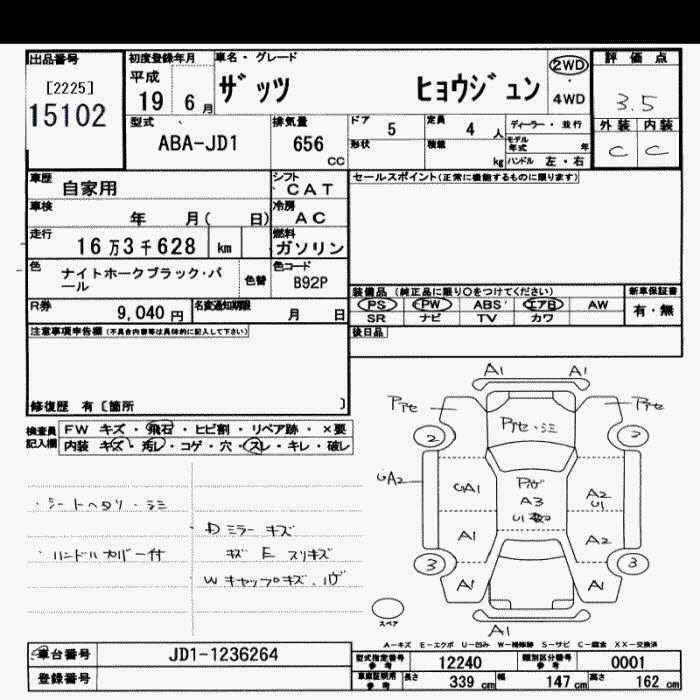 出品番号
[2225]
15102
初度登録年月
平成
19 6月
車名・グレード
ザッツ ヒョウジュン
2WD
・
4WD
評価点
3.5
外装 内装
C C
型式
ABA-JD1
排気量
656
cc
ドア 5
定員 4 人
形状
積載 kg
ディーラー・並行
モデル年式 年
ハンドル 左・右
車歴
自家用
シフト
CAT
車検
年 月( 日)
冷房
AC
走行
16万3千628 km
燃料
ガソリン
色
ナイトホークブラック・パール
色替
色コード
B92P
R券
9,040円
名変通知期限
月 日
セールスポイント(正常に機能するものに限ります)
装備品 (純正品に限り〇をつけてください)
PS PW ABS エアB AW
SR ナビ TV カワ
新車保証書
有・無
後日品
注意事項申告欄(不具合内容等は具体的に記入して下さい)
修復歴 有〔箇所 〕
検査員記入欄
FW キズ・飛石・ヒビ割・リペア跡・×要
内装 キズ・汚レ・コゲ・穴・スレ・キレ・破レ
・シートヘタリ・シミ
・ハンドルカバー付
・Dミラーキズ
キズE スリキズ
Wキャップキズ
A1 A1
2 2
A2
GA1
A3
A2
U1
A1
A2
3 3
A1 A1
A1
スペア
A-キズ E-エクボ U-凹み W-補修跡 S-サビ C-腐食 XX-交換済
車台番号
JD1-1236264
登録番号
型式指定番号
参考
12240
類別区分番号
参考
0001
車庫証明用
参考
長さ 339 cm
幅 147 cm
高さ 162 cm